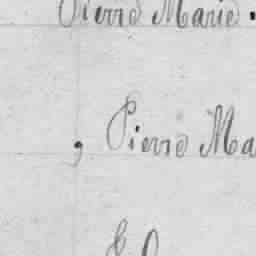 Pierre Marie.
, Pierre Ma